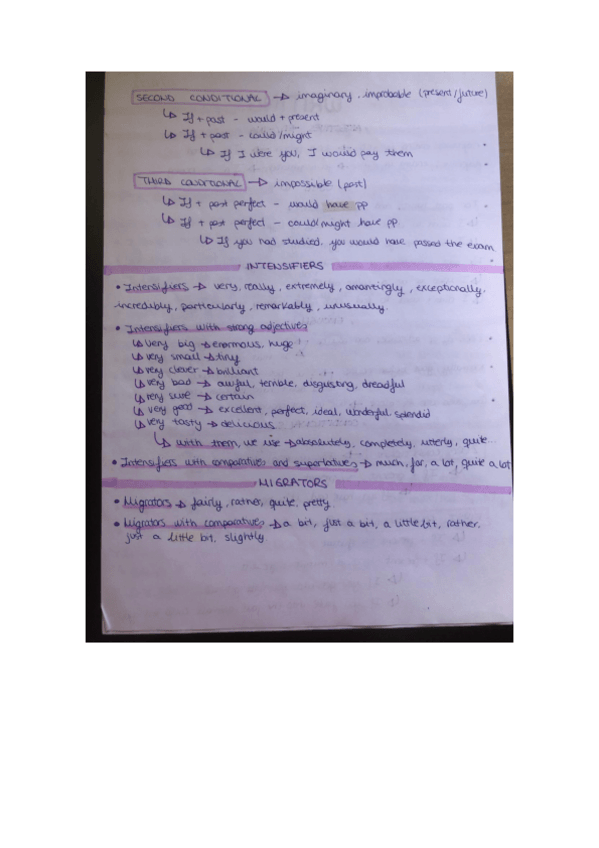 SECOND CONDITIONAL → imaginary, improbable (present/future)
↳ If + past - would + present
↳ If + past - could/might
↳ If I were you, I would pay them
THIRD CONDITIONAL → impossible (past)
↳ If + past perfect - would have pp
↳ If + past perfect - could/might have pp
↳ If you had studied, you would have passed the exam
INTENSIFIERS
• Intensifiers → very, really, extremely, amantingly, exceptionally,
incredibly, particularly, remarkably, unusually.
• Intensifiers with strong adjectives
↳ very big → enormous, huge
↳ very small → tiny
↳ very clever → brilliant
↳ very bad → awful, terrible, disgusting, dreadful
↳ very sure → certain
↳ very good → excellent, perfect, ideal, wonderful, splendid
↳ very tasty → delicious
↳ with them, we use → absolutely, completely, utterly, quite...
• Intensifiers with comparatives and superlatives → much, far, a lot, quite a lot
MIGRATORS
• Migrators → fairly, rather, quite, pretty
• Migrators with comparatives → a bit, just a bit, a little bit, rather,
just a little bit, slightly